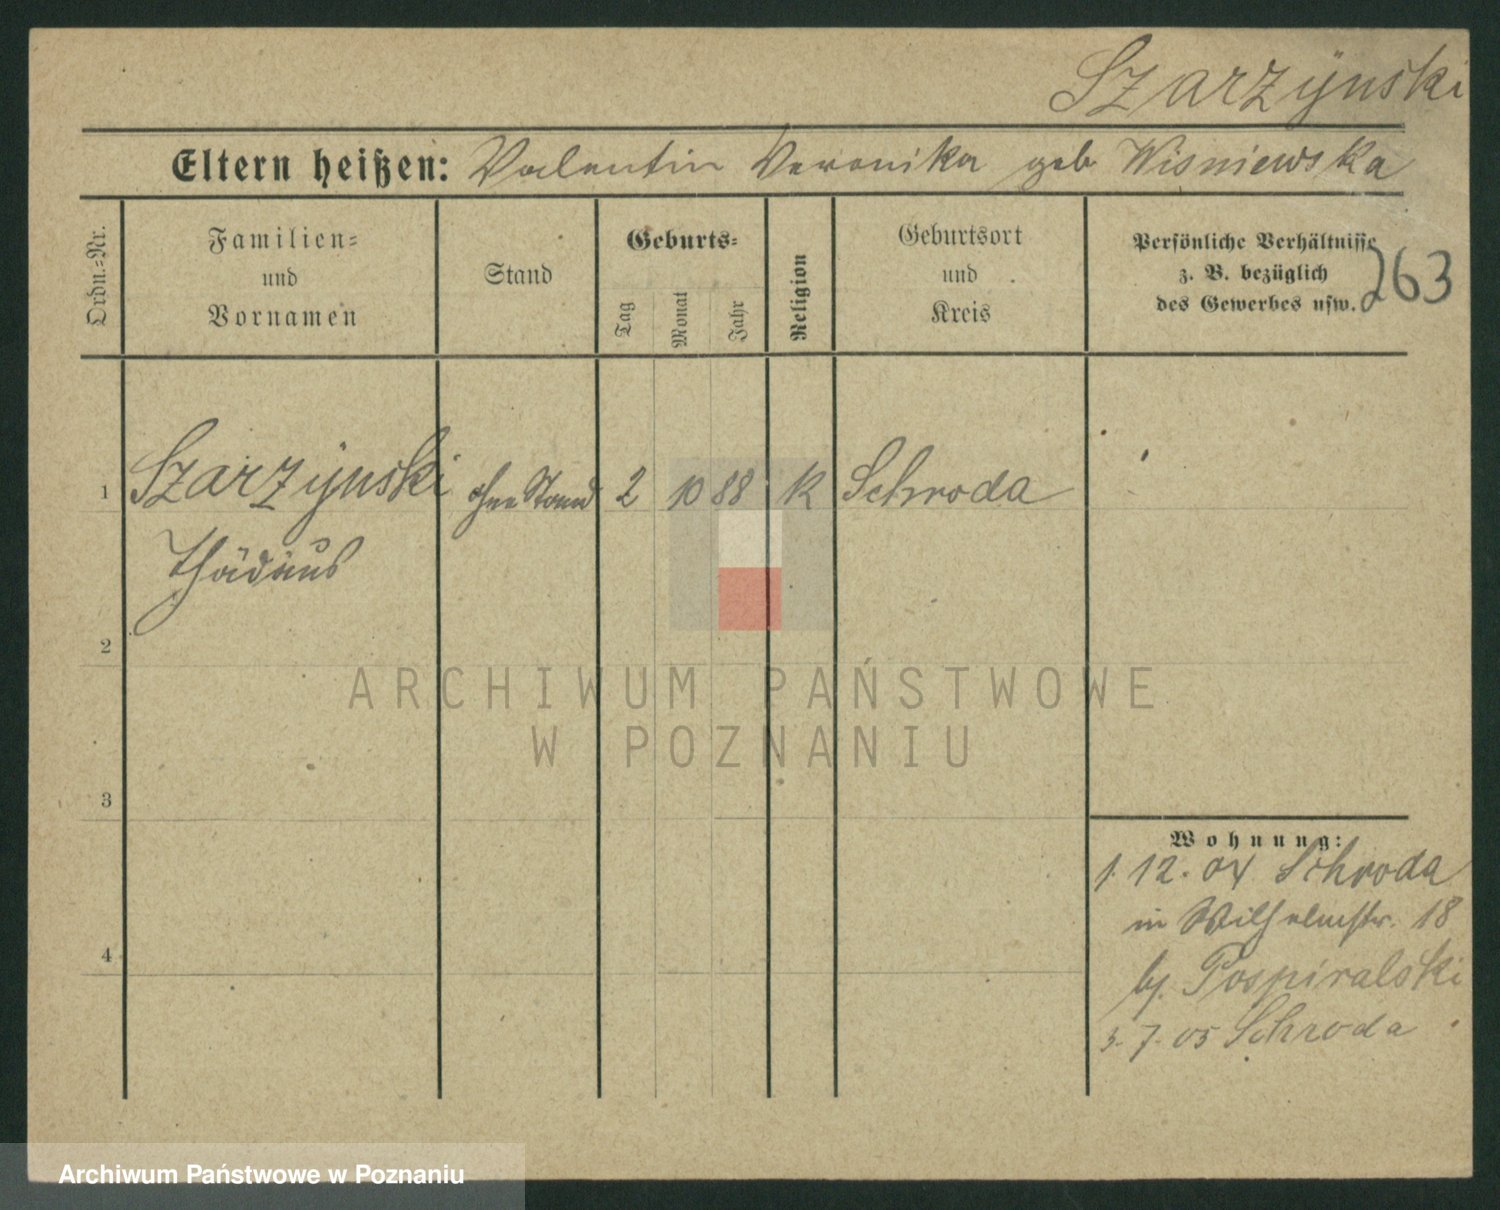 Szarzÿnski
Eltern heißen: Valentin Veronika geb Wisniewska
Ordn.=Nr.
Familien=
und
Vornamen
Stand
Geburts=
Tag
Monat
Jahr
Religion
Geburtsort
und
Kreis
Persönliche Verhältnisse
z. B. bezüglich
des Gewerbes usw.
263
1 Szarzÿnski ohne Stand 2 10 88 K Schroda
Thädäus
2
3
4
Wohnung:
1. 12. 04 Schroda
in Wilhelmstr. 18
bj. Pospiralski
3. 7. 05 Schroda
ARCHIWUM PAŃSTWOWE
W POZNANIU
Archiwum Państwowe w Poznaniu